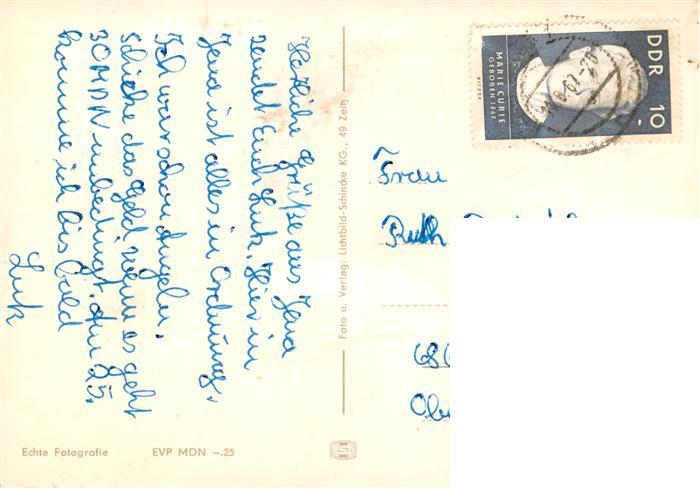 Herzliche Grüße aus Jena
sendet Euch Lutz. Hier in
Jena ist alles in Ordnung.
Ich war schon Angeln.
Schicke das Geld wenn es geht
30 MDN unbedingt. Am 25.
komme ich bis bald
Lutz
Echte Fotografie EVP MDN –.25
Foto u. Verlag: Lichtbild-Schincke KG., 49 Zeitz
DDR 10
MARIE CURIE
GEBOREN 1867
Frau
Ruth